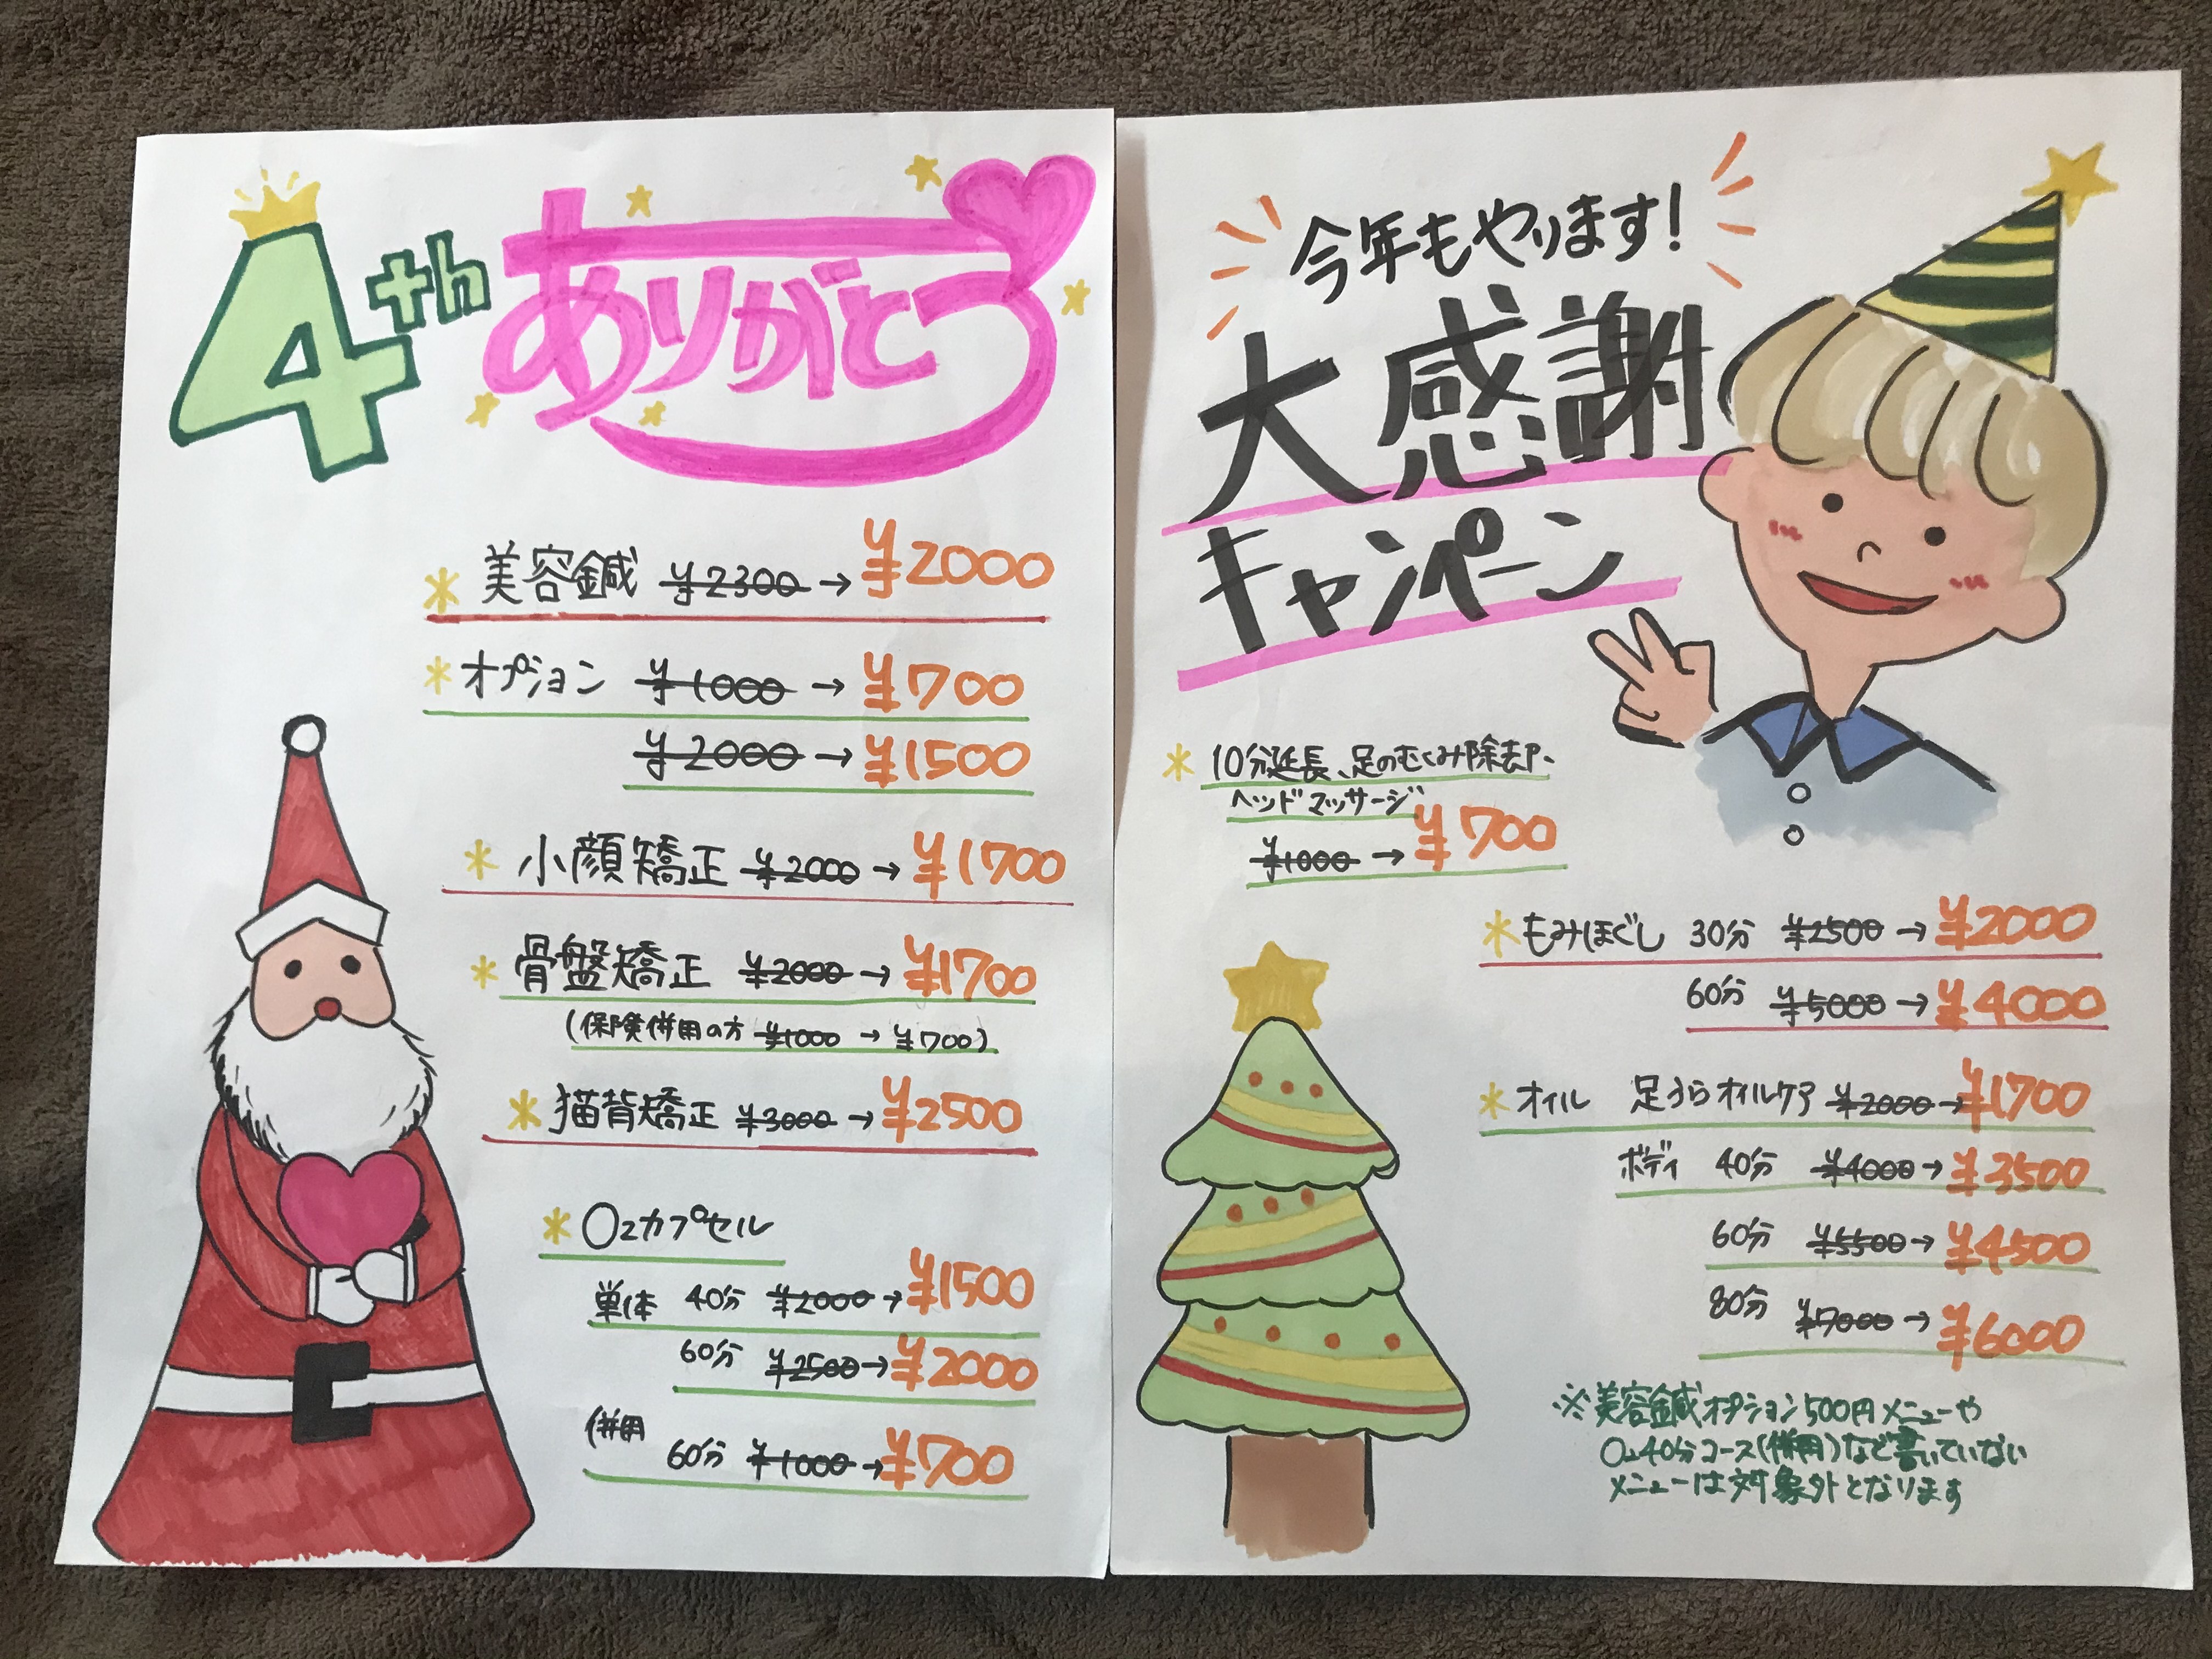 4th ありがとう
*美容鍼 ¥2300→¥2000
*オプション ¥1000→¥700
¥2000→¥1500
*小顔矯正 ¥2000→¥1700
*骨盤矯正 ¥2000→¥1700
(保険併用の方 ¥1000→¥700)
*猫背矯正 ¥3000→¥2500
*O2カプセル
単体 40分 ¥2000→¥1500
60分 ¥2500→¥2000
併用 60分 ¥1000→¥700
今年もやります!
大感謝
キャンペーン
*10分延長、足のむくみ除去、
ヘッドマッサージ
¥1000→¥700
*もみほぐし 30分 ¥2500→¥2000
60分 ¥5000→¥4000
*オイル 足うらオイルケア ¥2000→¥1700
ボディ 40分 ¥4000→¥3500
60分 ¥5500→¥4500
80分 ¥7000→¥6000
※美容鍼オプション500円メニューや
O2 40分コース(併用)など書いていない
メニューは対象外となります